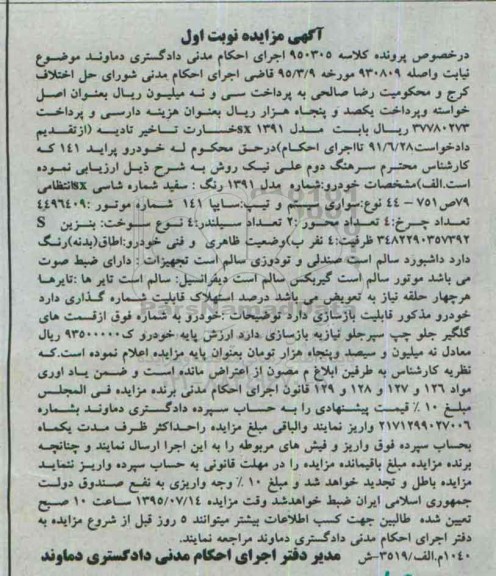 آگهی مزایده نوبت اول
درخصوص پرونده کلاسه ۹۵۰۳۰۵ اجرای احکام مدنی دادگستری دماوند موضوع
نیابت واصله ۹۳۰۸۰۹ مورخه ۹۵/۳/۹ قاضی اجرای احکام مدنی شورای حل اختلاف
کرج و محکومیت رضا صالحی به پرداخت سی و نه میلیون ریال بعنوان اصل
خواسته وپرداخت یکصد و پنجاه هزار ریال بعنوان هزینه دارسی و پرداخت
۳۷۷۸۰۲۷۳ ریال بابت مدل ۱۳۹۱ sxخسارت تاخیر تادیه (ازتقدیم
دادخواست۹۱/۶/۲۸ تااجرای احکام)درحق محکوم له خودرو پراید ۱۴۱ که
کارشناس محترم سرهنگ دوم علی نیک روش به شرح ذیل ارزیابی نموده
است.الف)مشخصات خودرو:شماره مدل ۱۳۹۱ رنگ : سفید شماره شاسی sxانتظامی
۷۹ص۷۵۱ – ۴۴ نوع:سواری سیستم و تیپ:سایپا ۱۴۱ شماره موتور :۴,۴۹۶۴۰۹
تعداد چرخ:۴ تعداد محور:۲ تعداد سیلندر:۴ نوع سوخت: بنزین S
۳۴۸۲۲۹۰۳۵۷۳۹۲ ظرفیت:۴ نفر ب)وضعیت ظاهری و فنی خودرو:اطاق(بدنه)رنگ
دارد داشبورد سالم است صندلی و تودوزی سالم است تجهیزات : دارای ضبط صوت
می باشد موتور سالم است گیربکس سالم است دیفرانسیل: سالم است تایر ها :تایرها
هرچهار حلقه نیاز به تعویض می باشد درصد استهلاک قابلیت شماره گذاری دارد
خودرو مذکور قابلیت بازسازی دارد توضیحات :خودرو به شماره فوق ازقسمت های
گلگیر جلو چپ سپرجلو نیازبه بازسازی دارد ارزش پایه خودرو ک۹۳۵۰۰۰۰۰ ریال
معادل نه میلیون و سیصد وپنجاه هزار تومان بعنوان پایه مزایده اعلام نموده است.که
نظریه کارشناس به طرفین ابلاغ م مصون از اعتراض مانده است و ضمن یاد اوری
مواد ۱۲۶ و ۱۲۷ و ۱۲۸ و ۱۲۹ قانون اجرای احکام مدنی برنده مزایده فی المجلس
مبلغ ۱۰ ٪ قیمت پیشنهادی را به حساب سپرده دادگستری دماوند بشماره
۲۱۷۱۲۹۹۰۲۷۰۰۶ واریز نمایند والباقی مبلغ مزایده راحداکثر ظرف مدت یکماه
بحساب سپرده فوق واریز و فیش های مربوطه را به این اجرا ارسال نمایند و چنانچه
برنده مزایده مبلغ باقیمانده مزایده را در مهلت قانونی به حساب سپرده واریز ننماید
مزایده باطل و تجدید خواهد شد و مبلغ ۱۰ ٪ وجه واریزی به نفع صندوق دولت
جمهوری اسلامی ایران ضبط خواهدشد وقت مزایده ۱۳۹۵/۰۷/۱۴ ساعت ۱۰ صبح
تعیین شده طالبین جهت کسب اطلاعات بیشتر میتوانند ۵ روز قبل از شروع مزایده به
دفتر اجرای احکام مدنی دادگستری دماوند مراجعه نمایند.
۱۰۴۰م.الف/۳۵۱۹–ش مدیر دفتر اجرای احکام مدنی دادگستری دماوند